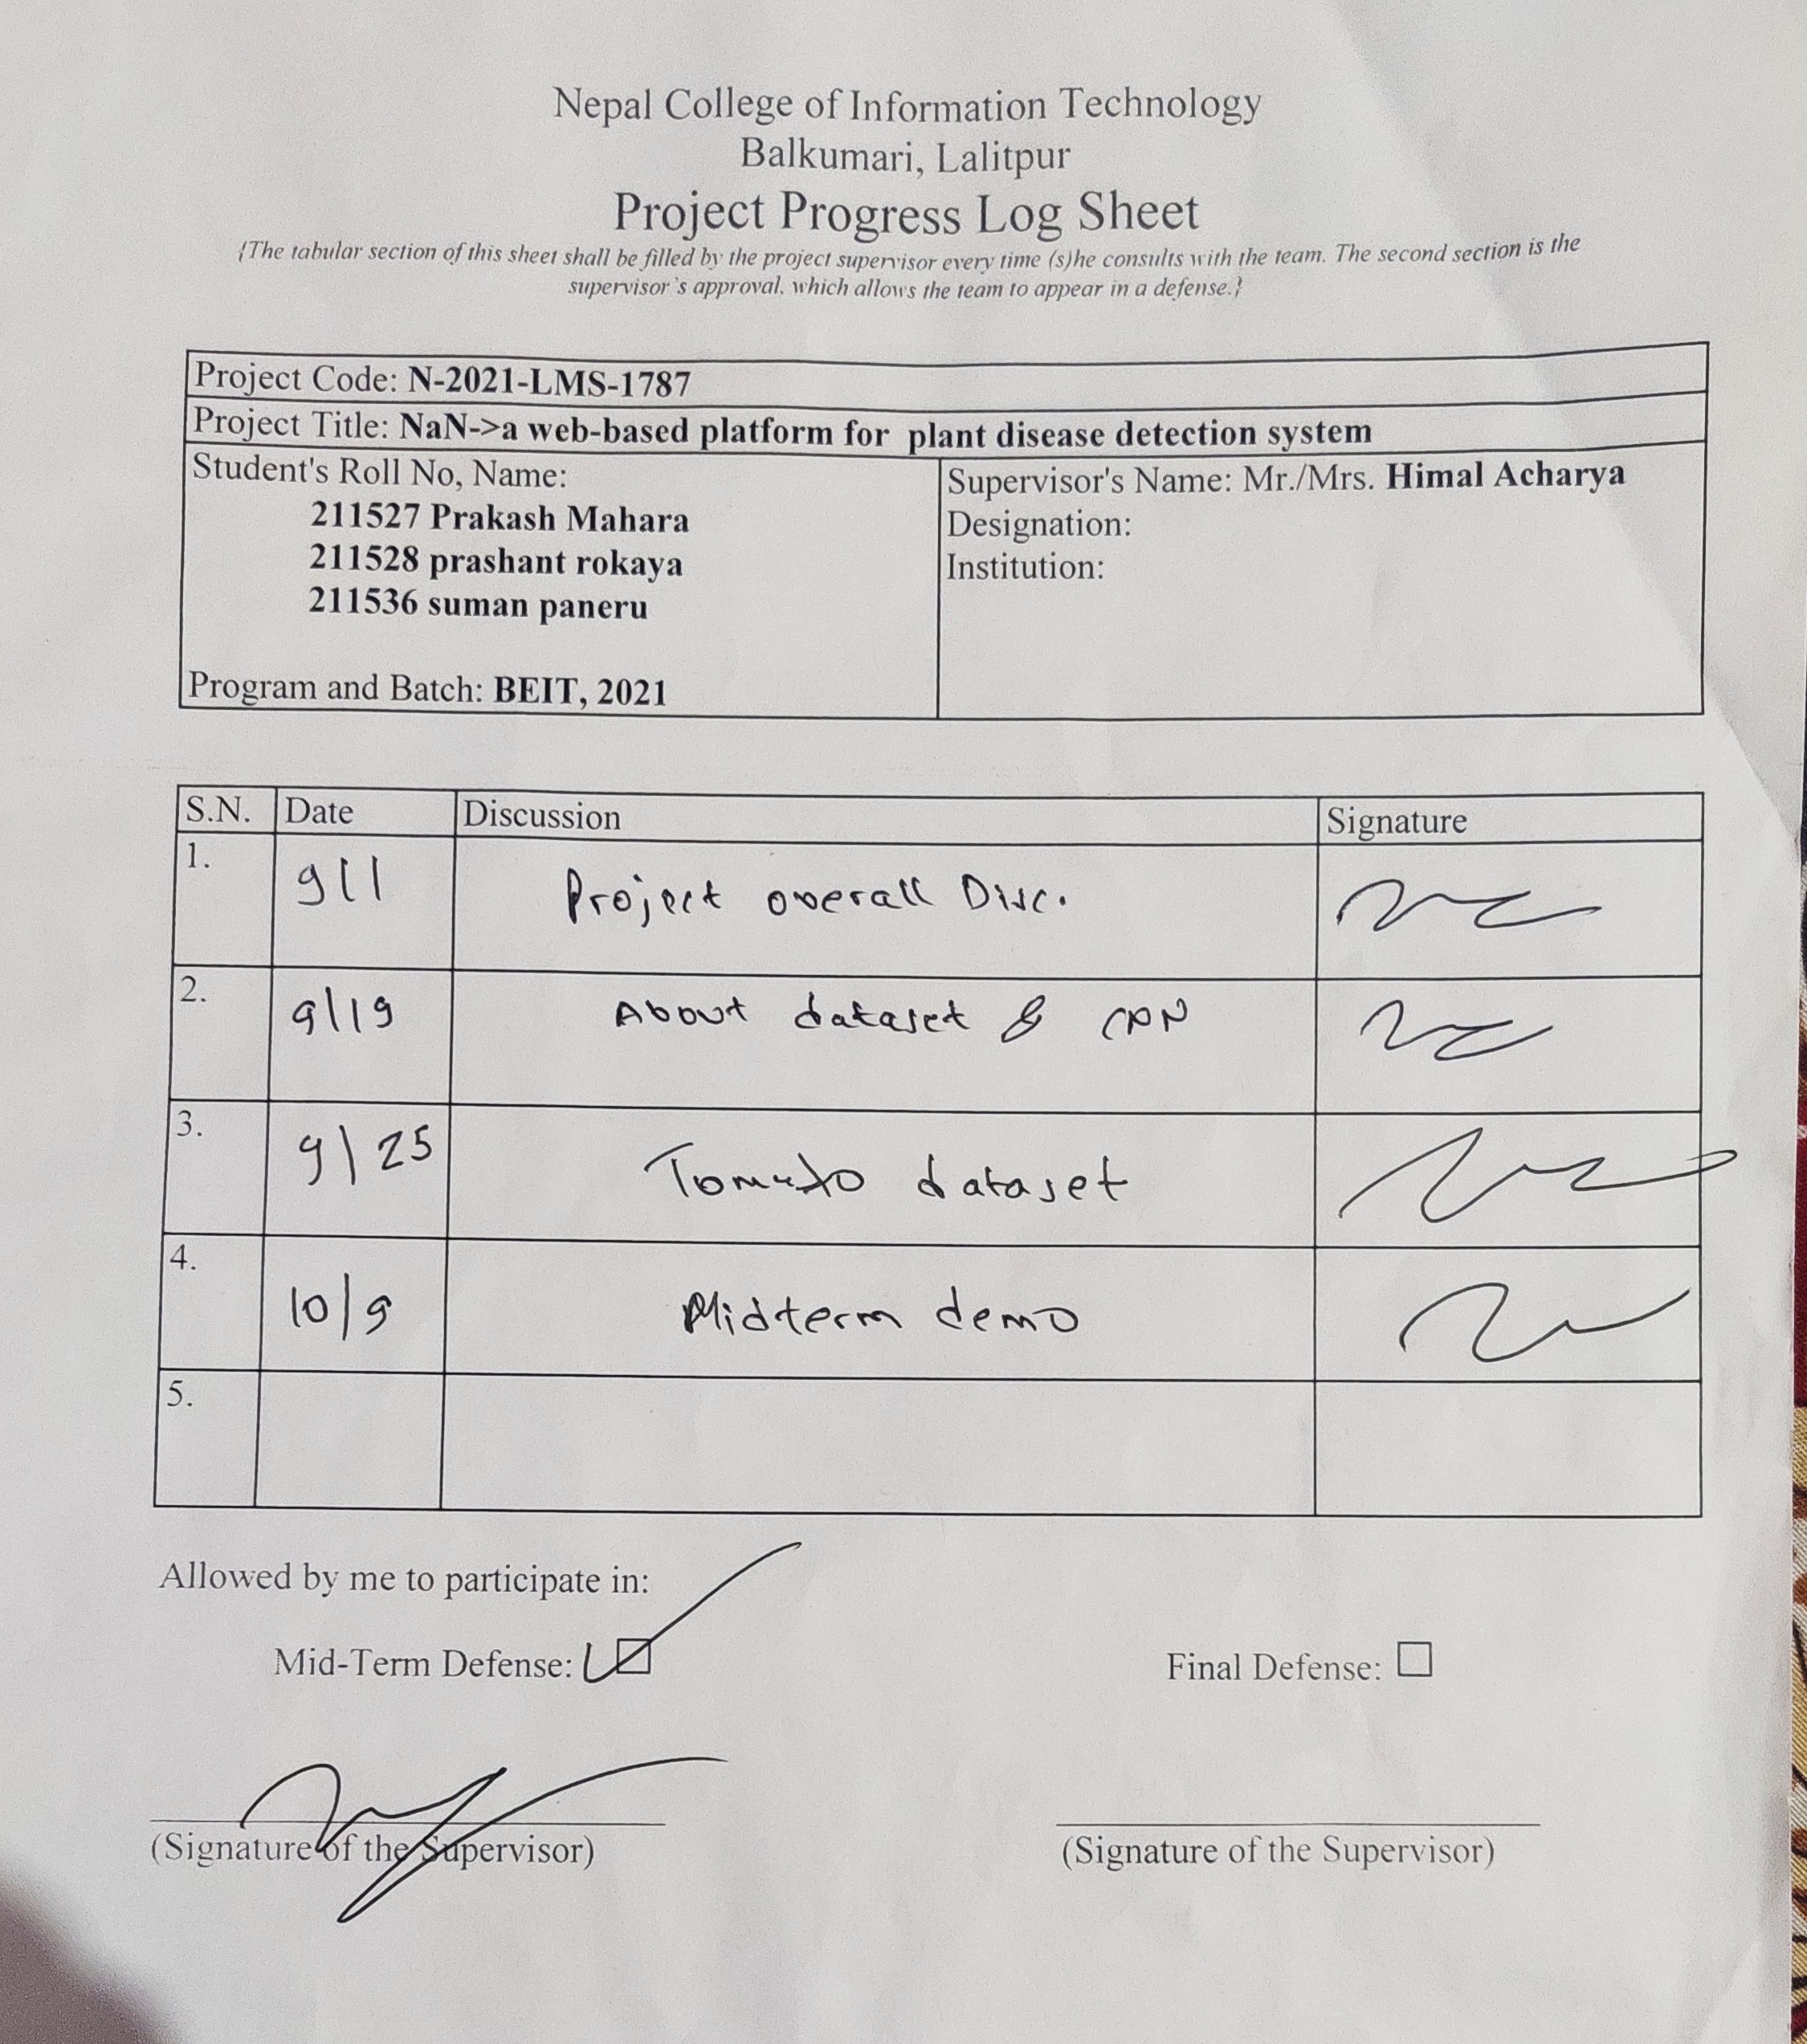 Nepal College of Information Technology
Balkumari, Lalitpur
Project Progress Log Sheet
{The tabular section of this sheet shall be filled by the project supervisor every time (s)he consults with the team. The second section is the
supervisor's approval, which allows the team to appear in a defense.}
Project Code: N-2021-LMS-1787
Project Title: NaN->a web-based platform for plant disease detection system
Student's Roll No, Name:
211527 Prakash Mahara
211528 prashant rokaya
211536 suman paneru
Program and Batch: BEIT, 2021
Supervisor's Name: Mr./Mrs. Himal Acharya
Designation:
Institution:
S.N. Date Discussion Signature
1. 9/1 Project overall Disc.
2. 9/19 About dataset &
3. 9/25 Tomato dataset
4. 10/9 Midterm demo
5.
Allowed by me to participate in:
Mid-Term Defense: Final Defense:
(Signature of the Supervisor) (Signature of the Supervisor)